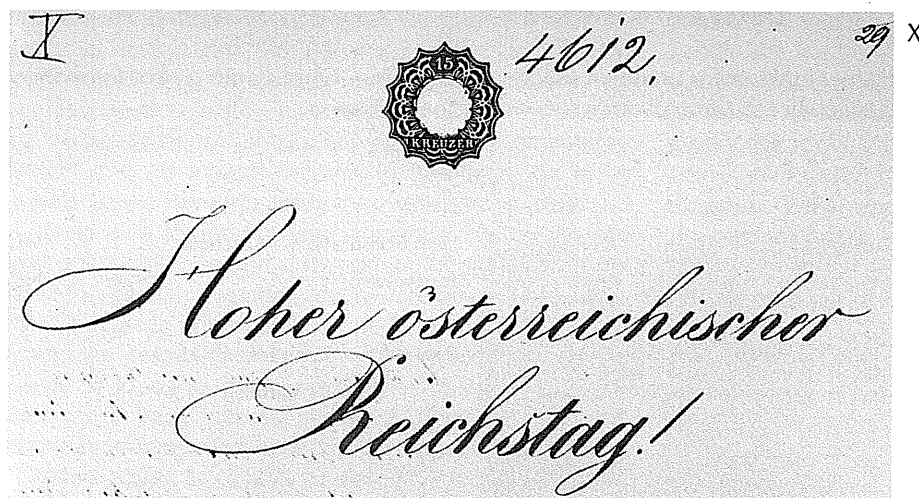 X 4612. 29 X
15
KREUZER
Hoher österreichischer
Reichstag!